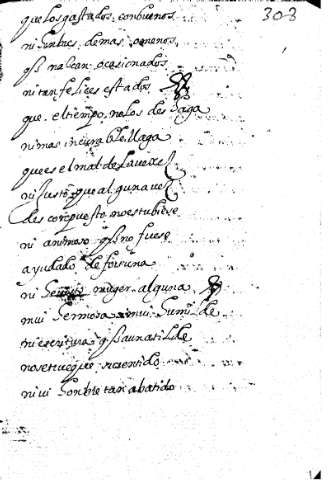 308
que los gastados, con buenos
ni hombres de mas o menos
q̃ se nalcan ocesionados
ni tan felices estados
que, el tiempo, no los desaga
ni mas incurable llaga
que es el mal de la vexez
ni Justo que alguna vez
descompuesto no estubiese
ni animoso q̃ no fuese
ayudado de fortuna
ni muger alguna
mui hermosa mui humilde
ni escritura q̃ aun a tilde
no se tuerque su sentido
ni vi honbre tan abatido